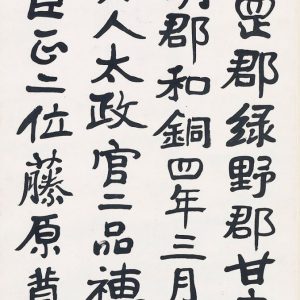 罡郡緑野郡甘
胡郡和銅四年三月
人太政官二品穂
臣正二位藤原尊